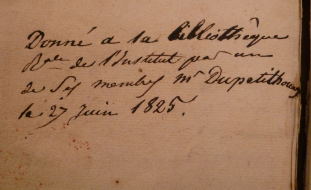 Donné a la bibliothèque
Rale de l'Institut par un
de ses membres Mr Dupetithouars
le 27 juin 1825.